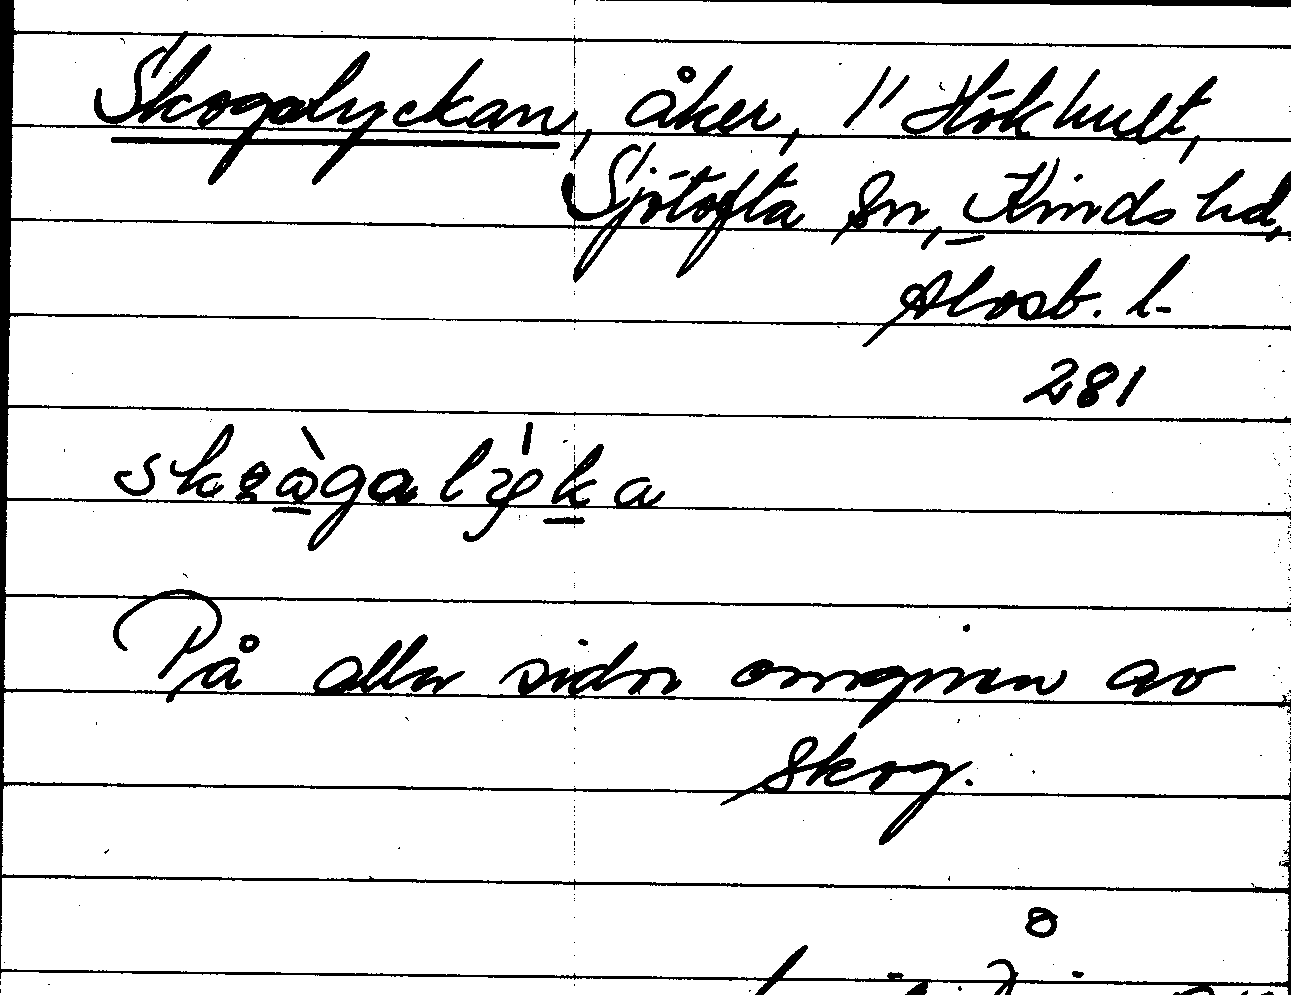 Skogalyckan, åker, i Hökhult,
Sjötofta sn, Kinds hd,
Älvsb. l.
281
På alla sidor omgiven av
skog.